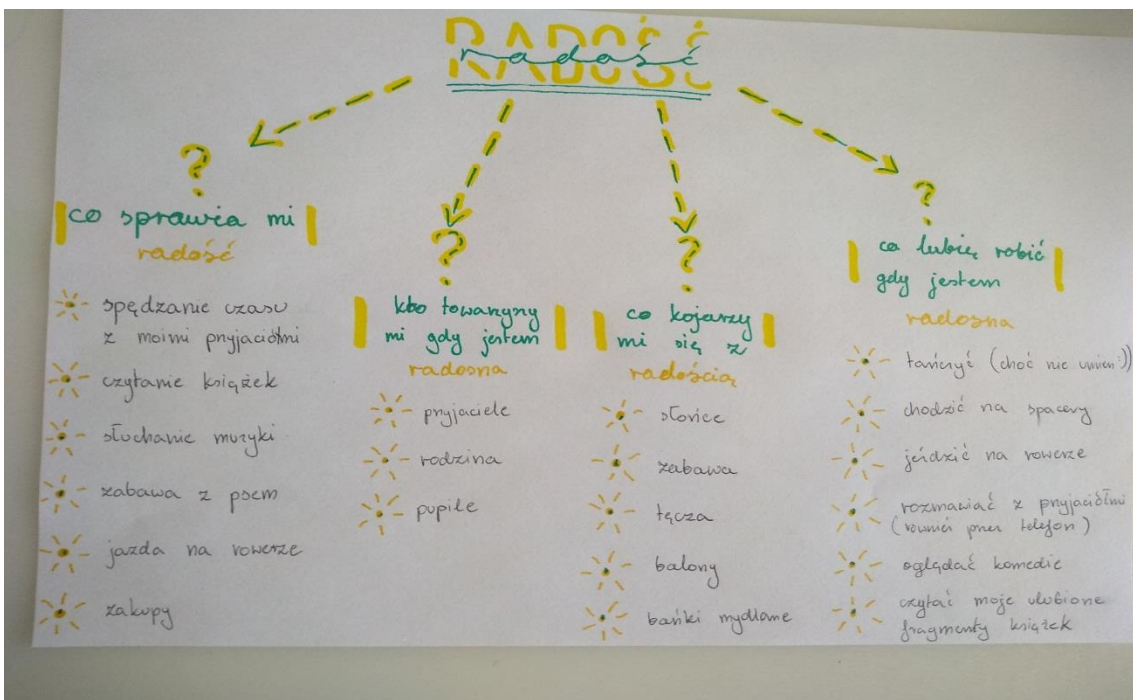 RADOŚĆ
radość
?
co sprawia mi
radość
spędzanie czasu
z moimi przyjaciółmi
czytanie książek
słuchanie muzyki
zabawa z psem
jazda na rowerze
zakupy
?
kto towarzyszy
mi gdy jestem
radosna
przyjaciele
rodzina
pupile
?
co kojarzy
mi się z
radością
słońce
zabawa
tęcza
balony
bańki mydlane
?
co lubię robić
gdy jestem
radosna
tańczyć (choć nie umiem :))
chodzić na spacery
jeździć na rowerze
rozmawiać z przyjaciółmi
(również przez telefon)
oglądać komedie
czytać moje ulubione
fragmenty książek